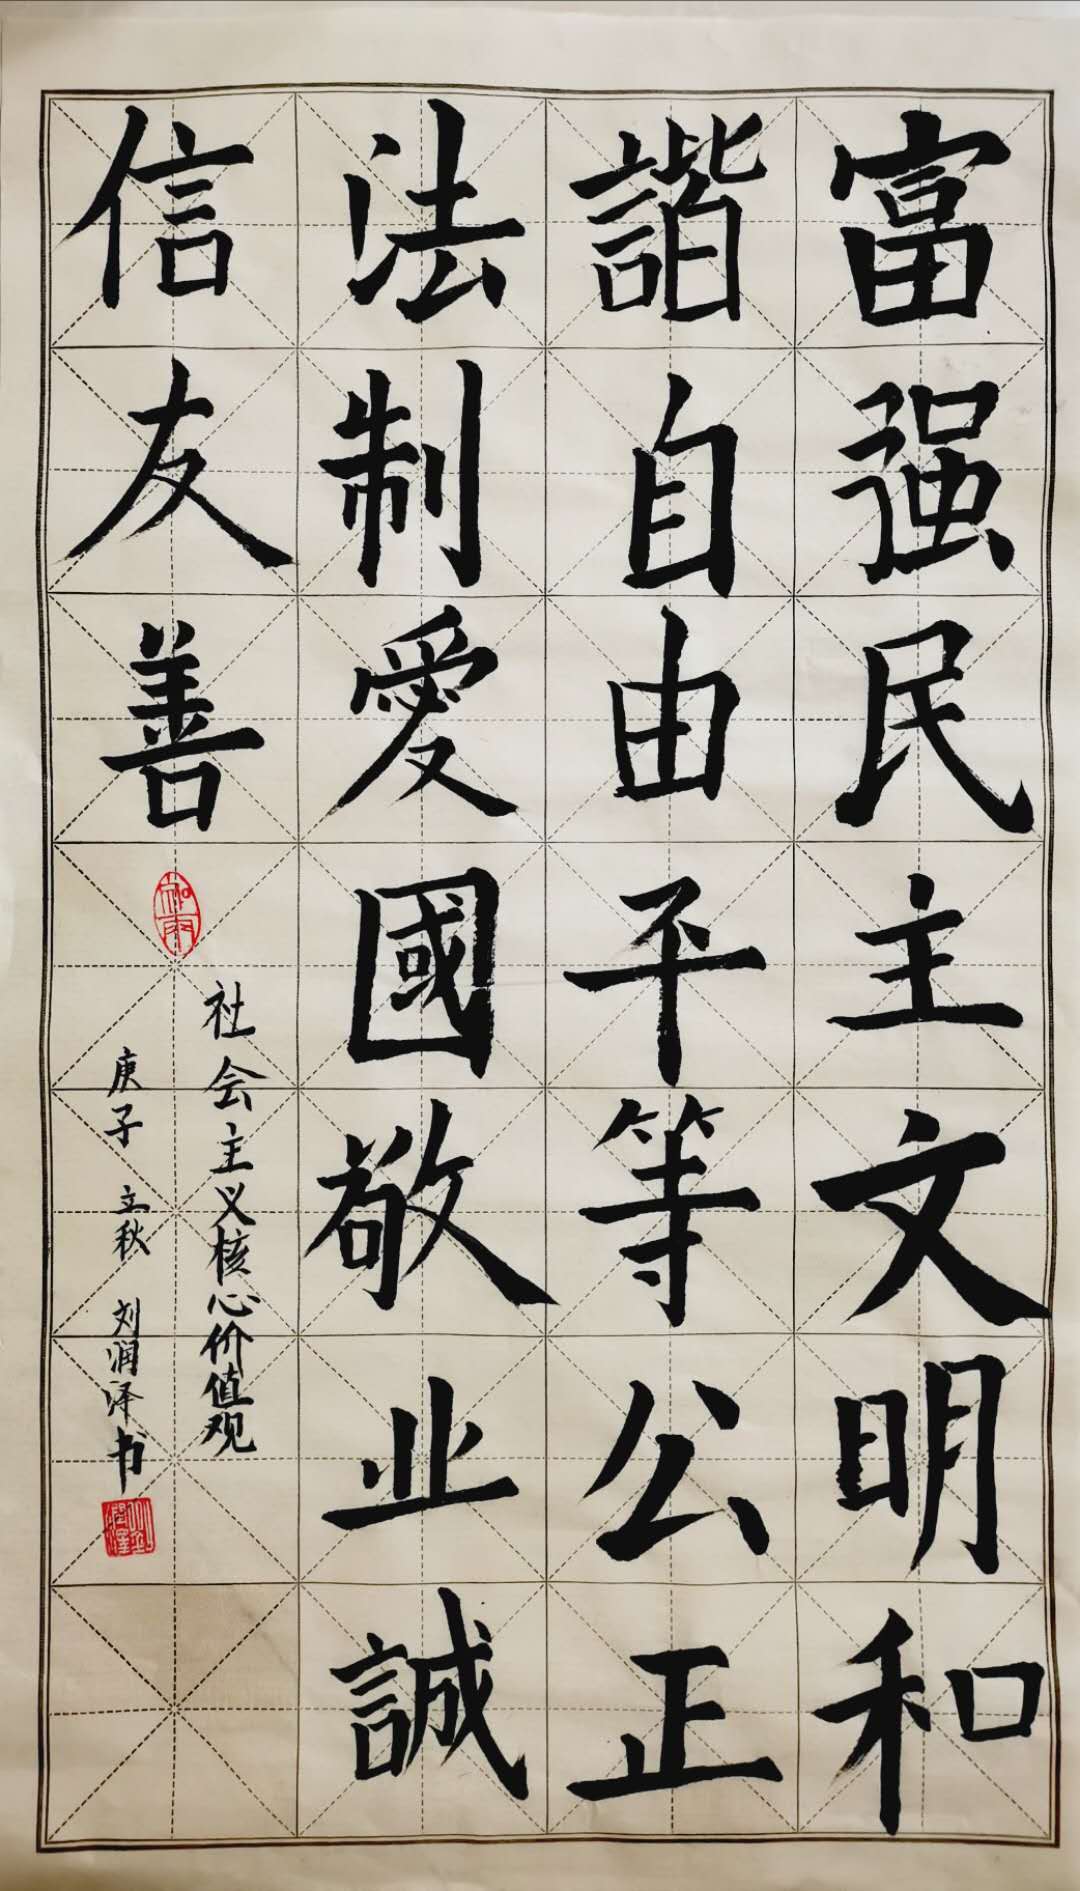 富强民主文明和
諧自由平等公正
法制愛國敬业誠
信友善
社会主义核心价值观
庚子 立秋 刘润泽书